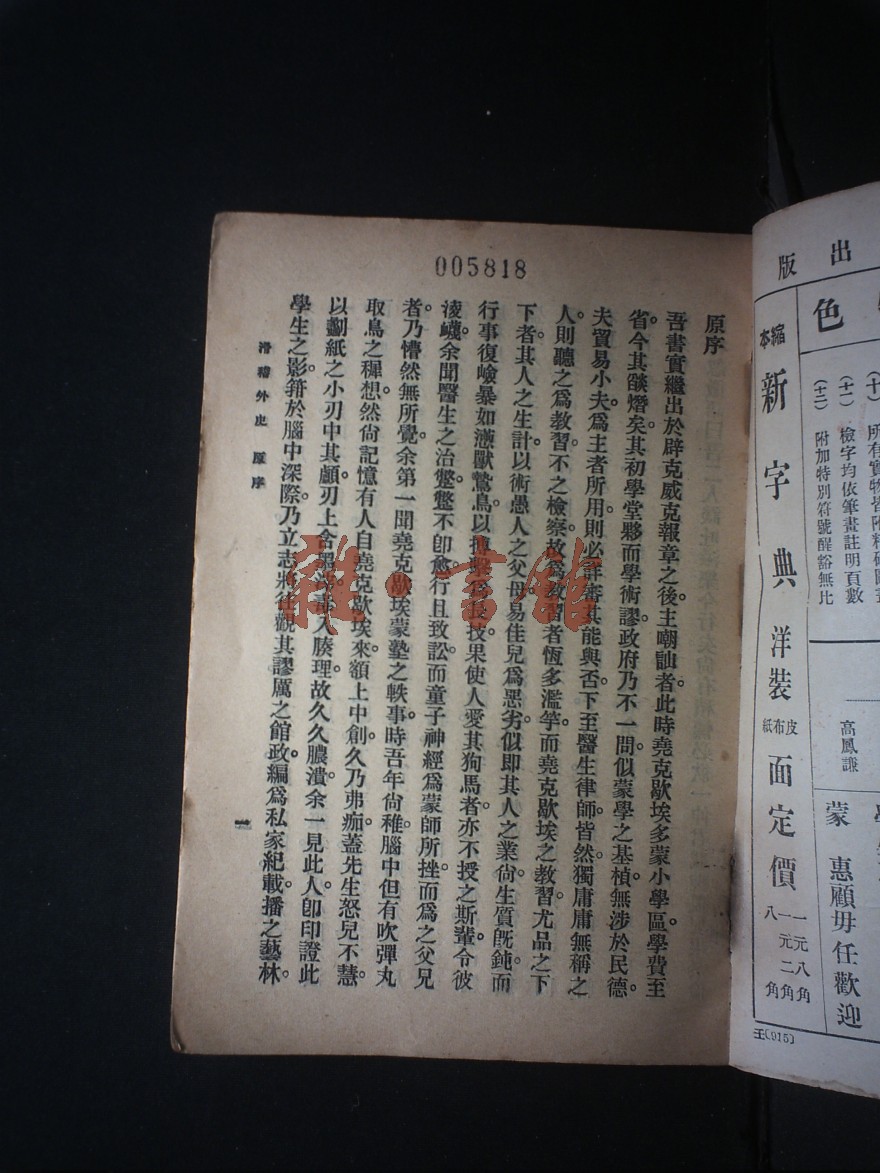 005818
原序
吾書實繼出於辟克威克報章之後主嘲訕者。此時堯克歇埃多蒙小學區。學費至
省。今其燄熸矣。其初學堂夥而學術謬。政府乃不一問。似蒙學之基楨無涉於民德。
夫貿易小夫。爲主者所用。則必詳審其能與否。下至醫生律師皆然。獨庸庸無稱之
人。則聽之爲教習。不之檢察。故爲教習者恆多濫竽。而堯克歇埃之教習。尤品之下
下者。其人之生計。以術愚人之父母。易佳兒爲惡劣。似即其人之業。尙生質旣鈍。而
行事復嶮暴如懣獸鷙鳥。以搏擊爲長技。果使人愛其狗馬者。亦不授之斯輩。令彼
淩蠛。余聞醫生之治蹩。蹩不卽愈。行且致訟。而童子神經爲蒙師所挫。而爲之父兄
者。乃懵然無所覺。余第一聞堯克歇埃蒙塾之軼事。時吾年尙稚。腦中但有吹彈丸
取鳥之穉想。然尙記憶有人自堯克歇埃來。額上中創。久乃弗痂。蓋先生怒兒不慧。
以劙紙之小刃中其顱。刃上含墨瀋。毒入腠理。故久久膿潰。余一見此人。卽印證此
學生之影。籍於腦中深際。乃立志將往觀其謬厲之館政。編爲私家紀載。播之藝林。
滑稽外史 原序
一
雜·書館
出版
色
縮本
新字典
洋裝
皮布紙
面定價
一元八角
一元二角
八角
(十一) 檢字均依筆畫註明頁數
(十二) 附加特別符號醒豁無比
高鳳謙
蒙惠顧毋任歡迎
王(915)